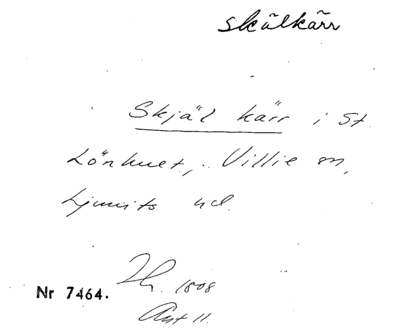 skälkärr
Skjäl kärr i St.
Lönhult, Villie sn,
Ljunits hd.
1808
Nr 7464.
Akt 11.